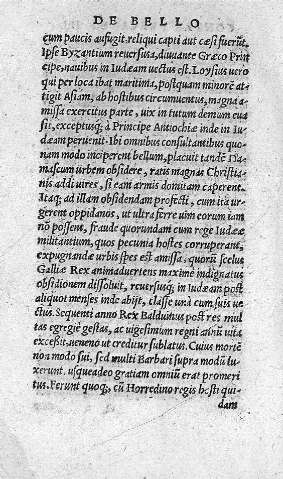 DE BELLO
cum paucis aufugit. reliqui capti aut cæsi fuerũt.
Ipse Byzantium reuersus, diuuante Græco Prin
cipe, nauibus in Iudæam uectus est. Loysius uero
qui per loca ibat maritima, postquam minorẽ at‑
tigit Asiam, ab hostibus circumuentus, magna a‑
missa exercitus parte, uix in tutum demum eua
sit, exceptusq; à Principe Antiochiæ inde in Iu
dæam peruenit. Ibi omnibus consultantibus quo
nam modo inciperent bellum, placuit tandẽ Da
mascum urbem obsidere, ratus magnas Christia‑
nis addi uires, si eam armis domitam caperent.
Itaq; ad illam obsidendam profecti, cum ita ur
gerent oppidanos, ut ultra ferre uim eorum iam
nõ possent, fraude quorundam cum rege Iudææ
militantium, quos pecunia hostes corruperant,
expugnandæ urbis spes est amissa, quorũ scelus
Galliæ Rex animaduertens maxime indignatus
obsidionem dissoluit, reuersusq; in Iudæam post
aliquot menses inde abijt, classe unà cum suis ue
ctus. Sequenti anno Rex Balduinus post res mul
tas egregiè gestas, ac uigesimum regni annũ uita
excessit, ueneno ut creditur sublatus. Cuius mortẽ
non modo sui, sed multi Barbari supra modũ lu‑
xerunt. usqueadeo gratiam omniũ erat promeri
tus. Ferunt quoq;, cũ Horredino regis hosti qui‑
dam